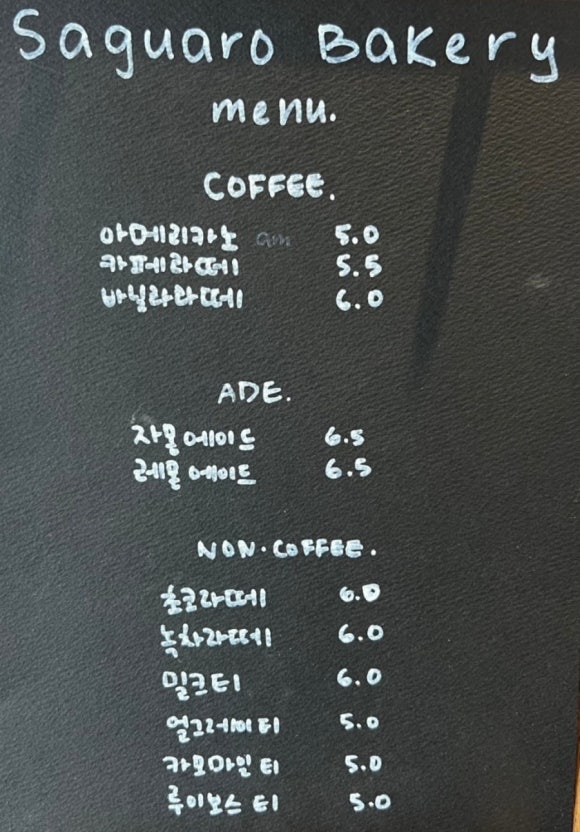 Saguaro Bakery
menu.
COFFEE.
아메리카노 am 5.0
카페라떼 5.5
바닐라라떼 6.0
ADE.
자몽에이드 6.5
레몽에이드 6.5
NON·COFFEE.
초코라떼 6.0
녹차라떼 6.0
밀크티 6.0
얼그레이티 5.0
카모마일티 5.0
루이보스티 5.0